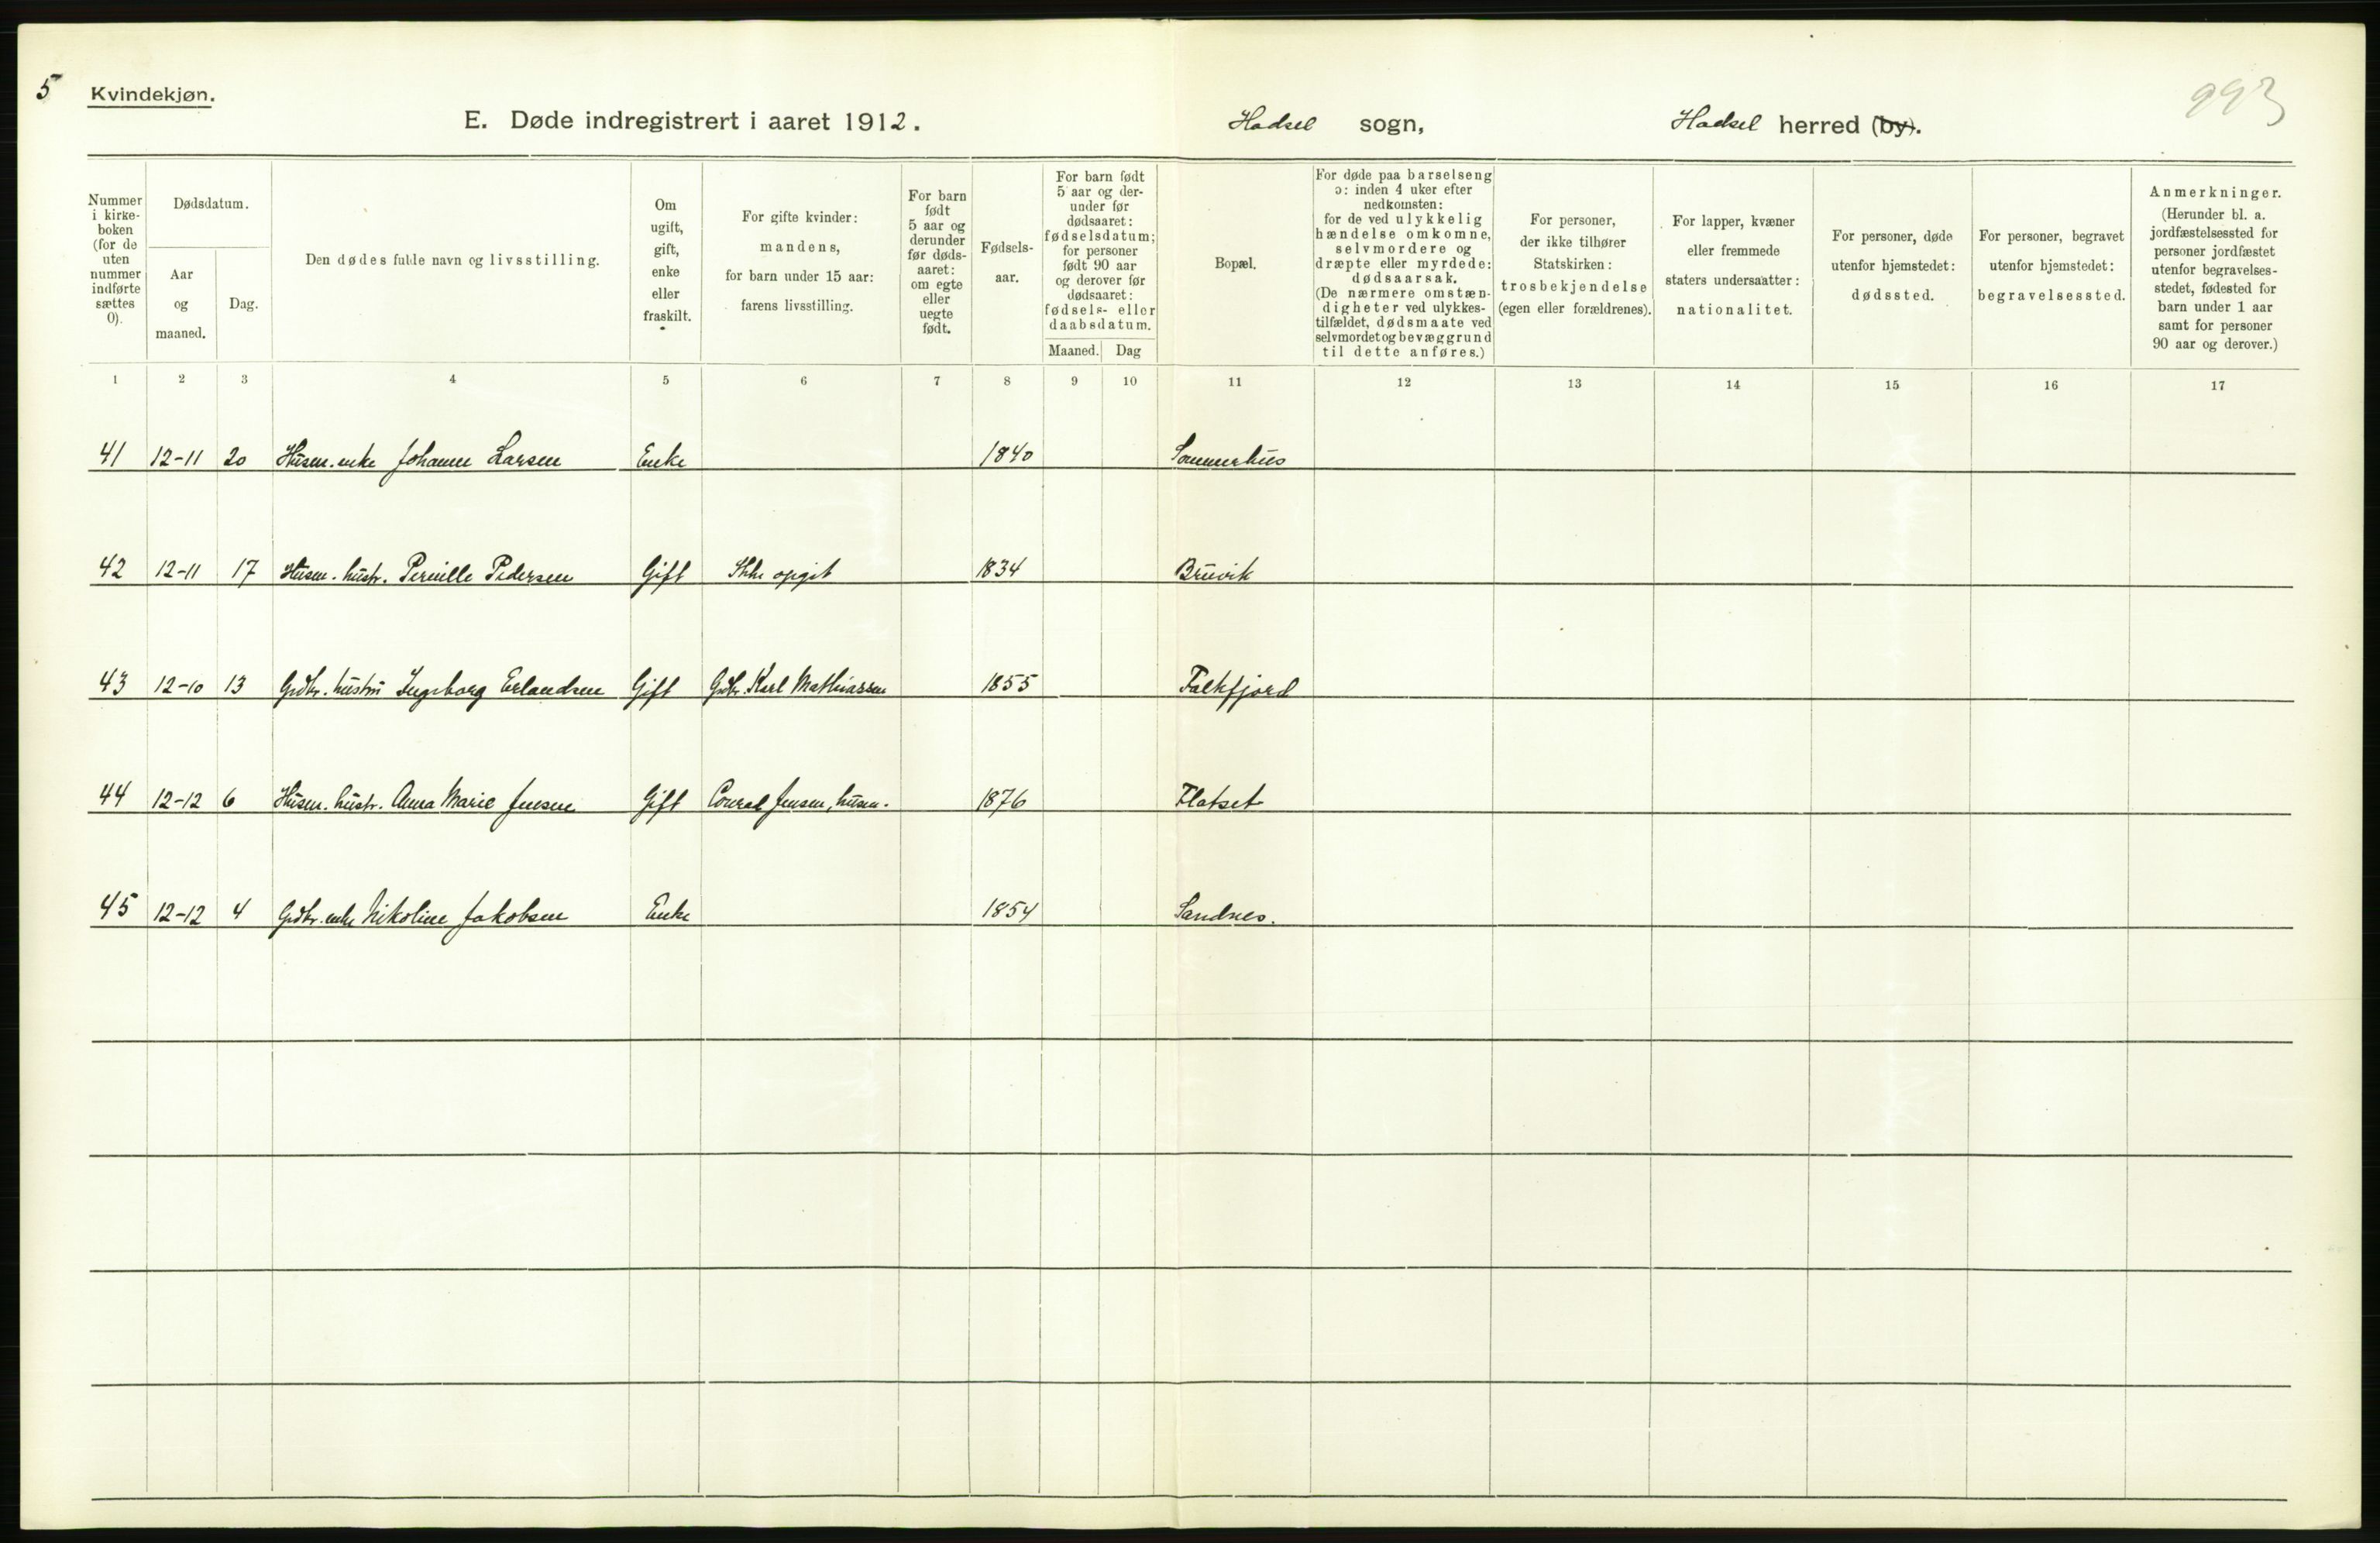 5
Kvindekjøn.
993
E. Døde indregistrert i aaret 1912.
Hadsel sogn,
Hadsel herred (by).
Nummer
i kirke-
boken
(for de
uten
nummer
indførte
sættes
0).
Dødsdatum.
Aar
og
maaned.
Dag.
Den dødes fulde navn og livsstilling.
Om
ugift,
gift,
enke
eller
fraskilt.
For gifte kvinder:
mandens,
for barn under 15 aar:
farens livsstilling.
For barn
født
5 aar og
derunder
før døds-
aaret:
om egte
eller
uegte
født.
Fødsels-
aar.
For barn født
5 aar og der-
under før
dødsaaret:
fødselsdatum;
for personer
født 90 aar
og derover før
dødsaaret:
fødsels- eller
daabsdatum.
Maaned. Dag
Bopæl.
For døde paa barselseng
ɔ: inden 4 uker efter
nedkomsten:
for de ved ulykkelig
hændelse omkomne,
selvmordere og
dræpte eller myrdede:
dødsaarsak.
(De nærmere omstæn-
digheter ved ulykkes-
tilfældet, dødsmaate ved
selvmordet og bevæggrund
til dette anføres.)
For personer,
der ikke tilhører
Statskirken:
trosbekjendelse
(egen eller forældrenes).
For lapper, kvæner
eller fremmede
staters undersaatter:
nationalitet.
For personer, døde
utenfor hjemstedet:
dødssted.
For personer, begravet
utenfor hjemstedet:
begravelsessted.
Anmerkninger.
(Herunder bl. a.
jordfæstelsessted for
personer jordfæstet
utenfor begravelses-
stedet, fødested for
barn under 1 aar
samt for personer
90 aar og derover.)
1 2 3 4 5 6 7 8 9 10 11 12 13 14 15 16 17
41 12-11 20 Husm. enke Johanne Larsen Enke 1840 Sommerhus
42 12-11 17 Husm. hustr. Pernille Pedersen Gift Ikke opgit 1834 Bruvik
43 12-10 13 Grdbr. hustru Ingeborg Erlandsen Gift Grdbr. Karl Mathiassen 1855 Falkfjord
44 12-12 6 Husm. hustr. Anna Marie Jensen Gift Conrad Jensen, husm. 1876 Flatset
45 12-12 4 Grdbr. enke Nikoline Jakobsen Enke 1854 Sandnes.